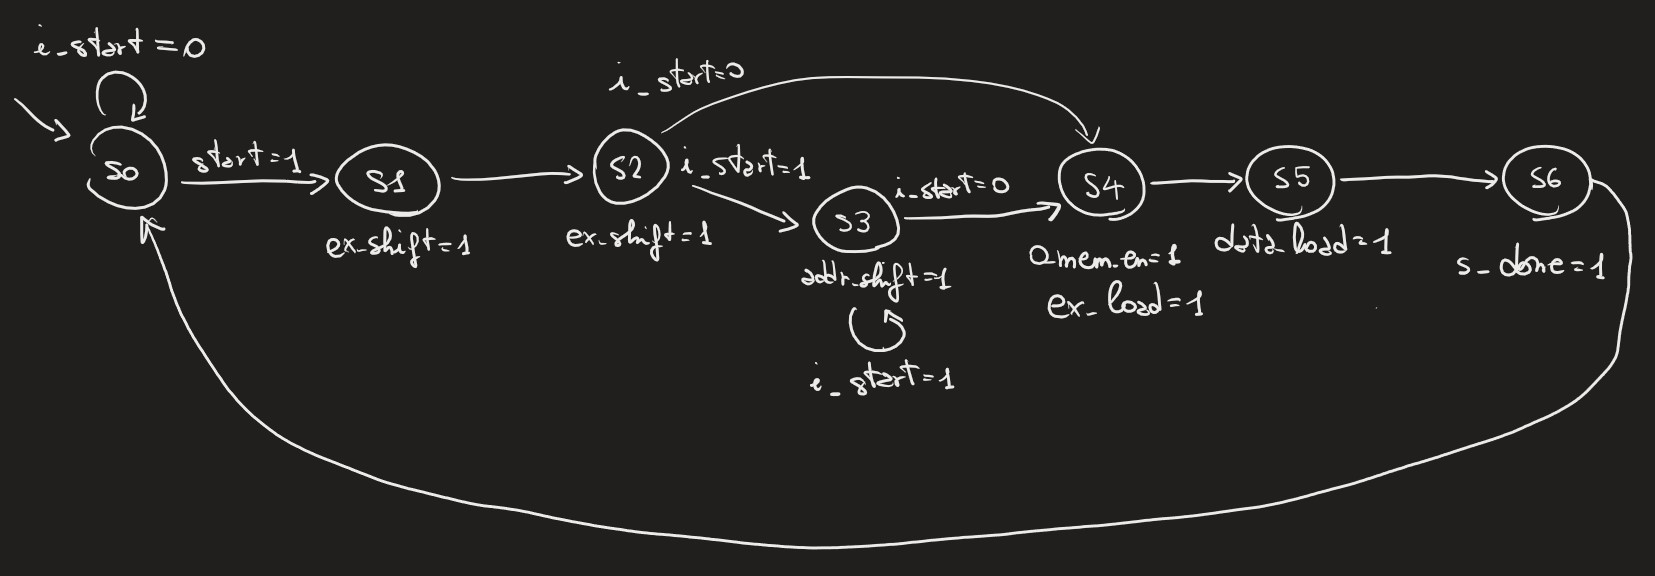 i_start=0
S0
start=1
S1
ex_shift=1
S2
ex_shift=1
i_start=0
i_start=1
S3
addr_shift=1
i_start=1
i_start=0
S4
o_mem_en=1
ex_load=1
S5
data_load=1
S6
s_done=1